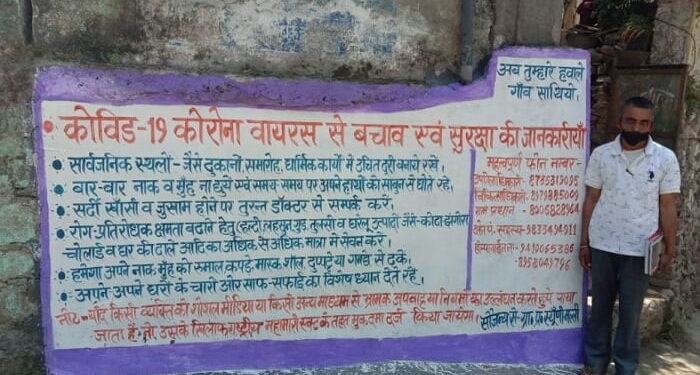 अब तुम्हारे हवाले
गाँव साथियो.
कोविड-19 कोरोना वायरस से बचाव एवं सुरक्षा की जानकारीयाँ
सार्वजनिक स्थलों - जैसे दुकानों, समारोह, धार्मिक कार्यों में उचित दूरी बनाये रखें,
बार-बार नाक व मुँह ना छुयें एवं समय-समय पर अपने हाथों को साबुन से धोते रहे,
सर्दी खाँसी व जुखाम होने पर तुरन्त डॉक्टर से सम्पर्क करें,
रोग-प्रतिरोधक क्षमता बढाने हेतु (हल्दी लहसुन, गुड़ तुलसी व घरेलू उत्पादों जैसे-कोदा झंगोरा
चोलाई व घर की दालें आदि का अधिक से अधिक मात्रा में सेवन करें,
हमेशा अपने नाक मुँह को रुमाल कपड़े मास्क शॉल दुपट्टे या गमछे से ढकें,
अपने अपने घरों के चारों ओर साफ-सफाई का विशेष ध्यान देते रहें,
महत्वपूर्ण फोन नम्बर-
8755319095
8979885009
ग्राम प्रधान - 8905828964
क्षे०प० सदस्य - 9833494911
9410065386
8958049796
नोट - यदि किसी व्यक्ति को शोशल मीडिया या किसी अन्य माध्यम से भ्रामक अफवाह या नियमों का उल्लंघन करते हुये पाया
जाता है, तो उसके खिलाफ राष्ट्रीय महामारी एक्ट के तहत मुकदमा दर्ज किया जायेगा।
सौजन्य से-ग्रा० प०